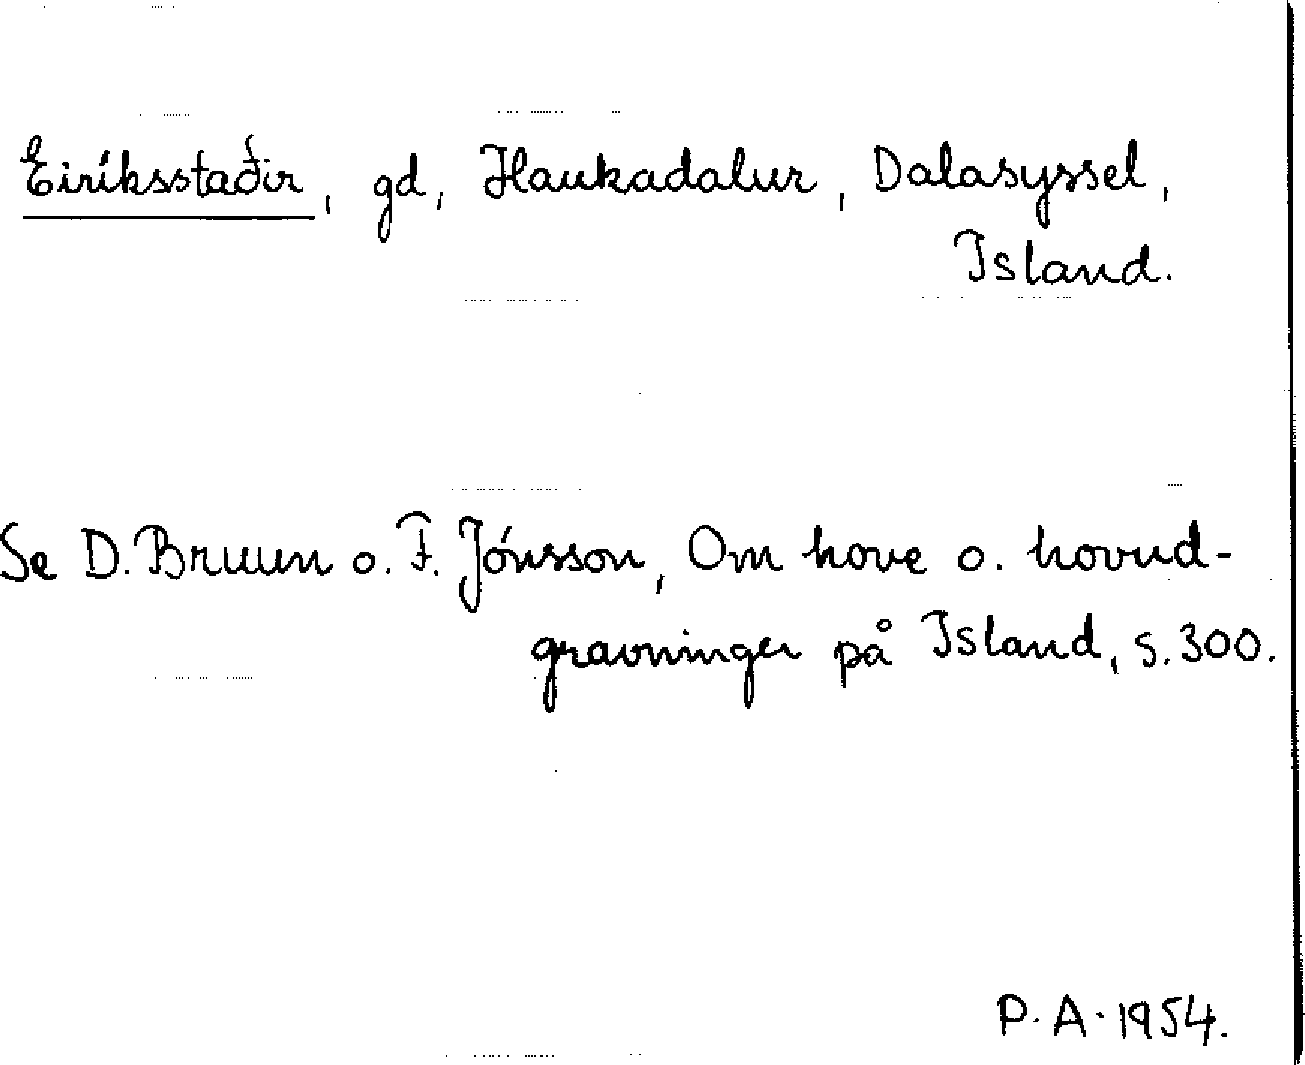 Eiríksstaðir, gd, Haukadalur, Dalasyssel,
Island.
Se D. Bruun o. F. Jónsson, Om hove o. hovud-
gravninger på Island, s. 300.
P. A. 1954.